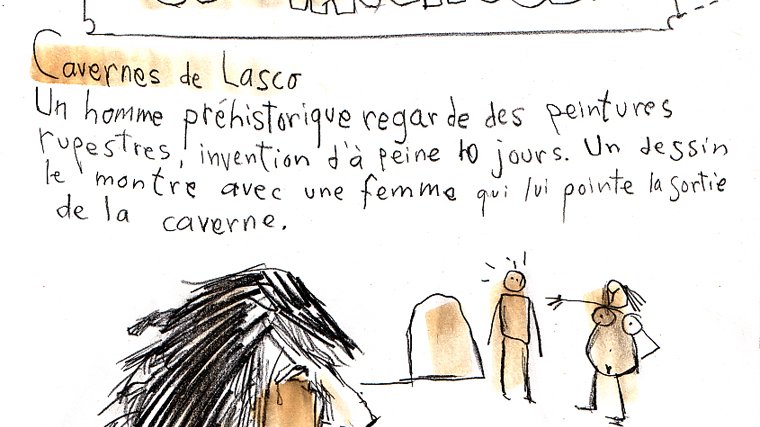 Cavernes de Lasco
Un homme préhistorique regarde des peintures
rupestres, invention d'à peine 10 jours. Un dessin
le montre avec une femme qui lui pointe la sortie
de la caverne.